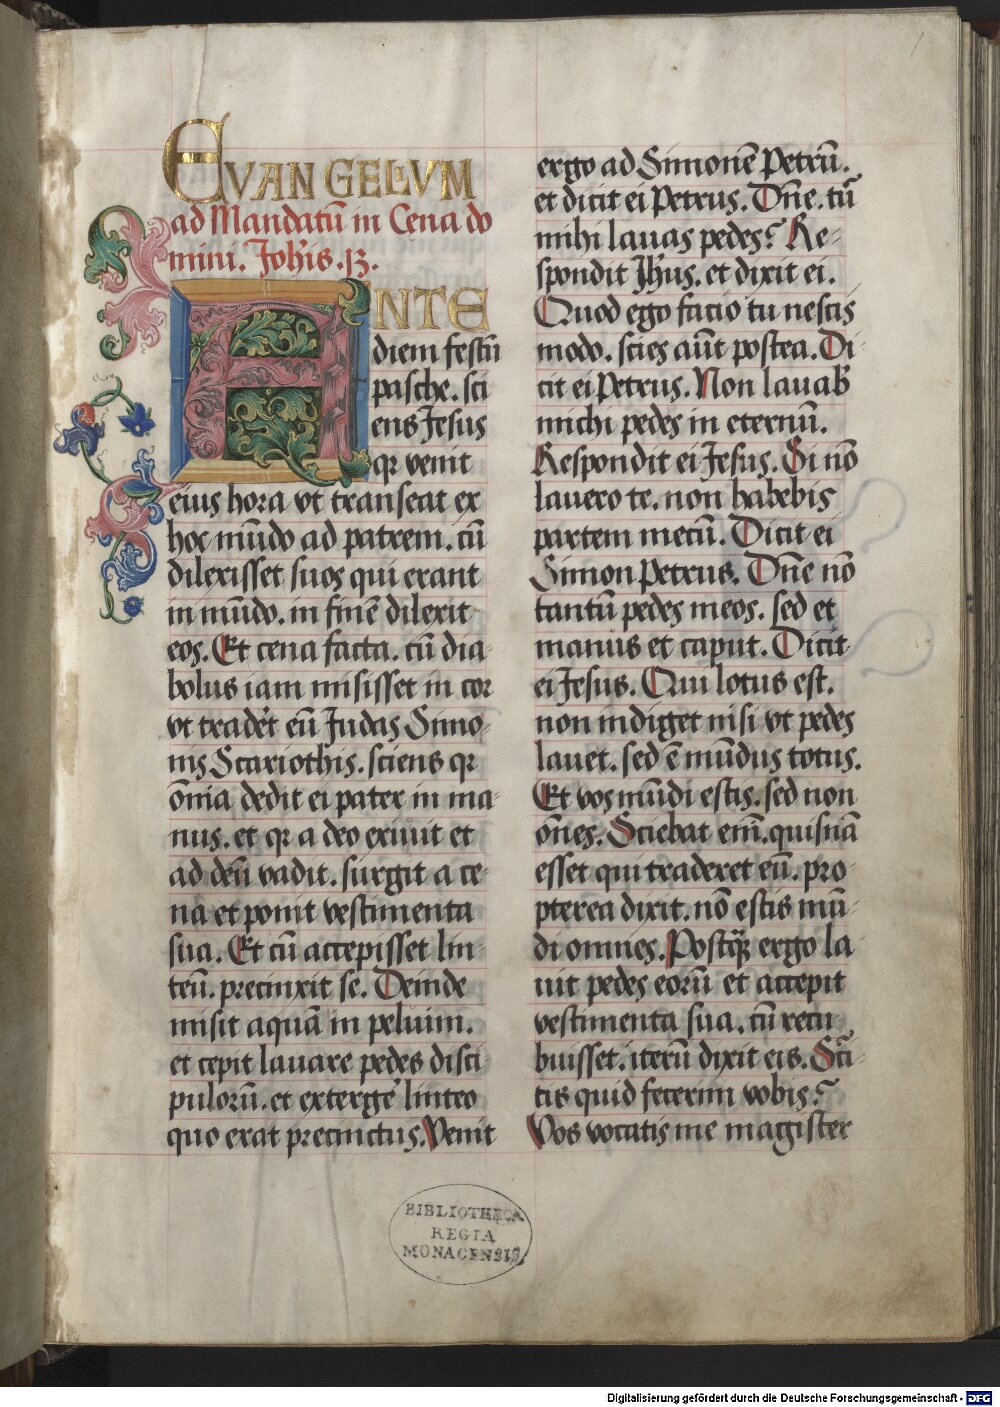 EVANGELIVM
ad Mandatū in Cena do
mini. Joh̄is .13.
ANTE
diem festū
pasche. sci
ens Jesus
qr venit
eius hora vt transeat ex
hoc mūdo ad patrem. cū
dilexisset suos qui erant
in mūdo. in finē dilexit
eos. Et cena facta. cū dia-
bolus iam misisset in cor
vt trader̄t eū Judas Simo-
nis Scariothis. sciens qr
ōnia dedit ei pater in ma-
nus. et qr a deo exiuit et
ad deū vadit. surgit a ce-
na et ponit vestimenta
sua. Et cū accepisset lin-
teū. precinxit se. Deinde
misit aquā in peluim.
et cepit lauare pedes disci
pulorū. et exterge᷑ linteo
quo erat precinctus. Venit
ergo ad Simonē Petrū.
et dicit ei Petrus. Dn̄e. tū
mihi lauas pedes? Re-
spondit Jh̄us. et dixit ei.
Quod ego facio tu nescis
modo. scies aūt postea. Di-
cit ei Petrus. Non lauab̄
michi pedes in eternū.
Respondit ei Jesus. Si nō
lauero te. non habebis
partem mecū. Dicit ei
Simon Petrus. Dn̄e nō
tantū pedes meos. sed et
manus et caput. Dicit
ei Jesus. Qui lotus est.
non indiget nisi vt pedes
lauet. sed ē mūdus totus.
Et vos mūdi estis. sed non
ōnes. Sciebat eim̄. quisnā
esset qui traderet eū. pro-
pterea dixit. nō estis mū-
di omnes. Postq̄ꝫ ergo la
uit pedes eorū et accepit
vestimenta sua. cū recu
buisset. iterū dixit eis. Sci-
tis quid fecerim vobis?
Vos vocatis me magister
BIBLIOTHECA
REGIA
MONACENSIS
Digitalisierung gefördert durch die Deutsche Forschungsgemeinschaft - DFG